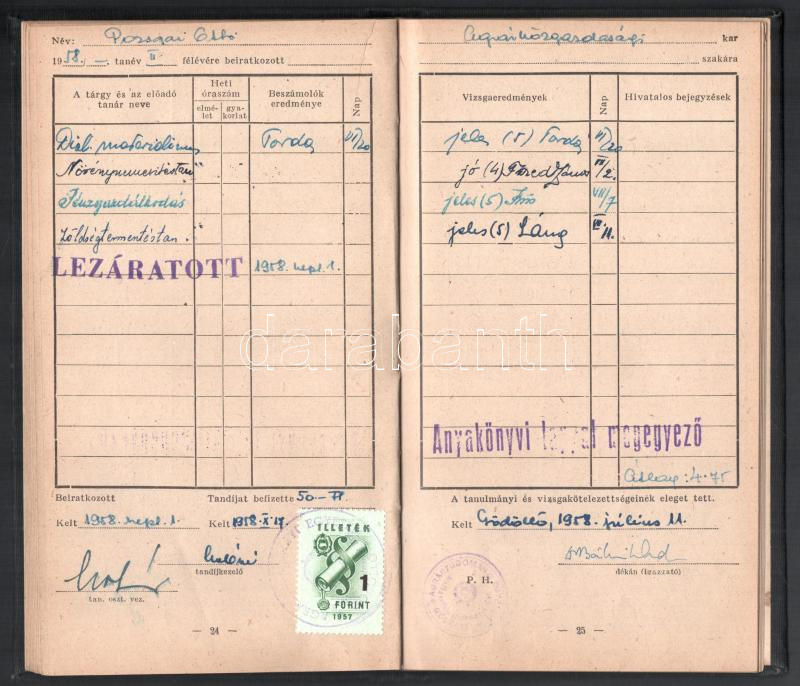 Név: Pozsgai Ottó
1958. — tanév II félévére beiratkozott
A tárgy és az előadó tanár neve
Heti óraszám
elmélet
gyakorlat
Beszámolók eredménye
Nap
Dial. materializmus Tarda VI/20
Növénynemesítéstan
Pénzgazdálkodás
Zöldségtermesztéstan
LEZÁRATOTT 1958. szept. 1.
Beiratkozott
Tandíjat befizette 50.— Ft
Kelt 1958. szept. 1.
Kelt 1958. X. 17.
tan. oszt. vez.
tandíjkezelő
ILLETÉK
1
FORINT
1957
— 24 —
Agrárközgazdasági kar
szakára
Vizsgaeredmények
Nap
Hivatalos bejegyzések
jeles (5) Tarda VI/20
jó (4)
jeles (5) VII/7
jeles (5) Láng VII. 11.
Anyakönyvi lappal megegyező
Átlag: 4.75
A tanulmányi és vizsgakötelezettségeinek eleget tett.
Kelt Gödöllő, 1958. július 11.
dékán (igazgató)
P. H.
— 25 —
darabanth